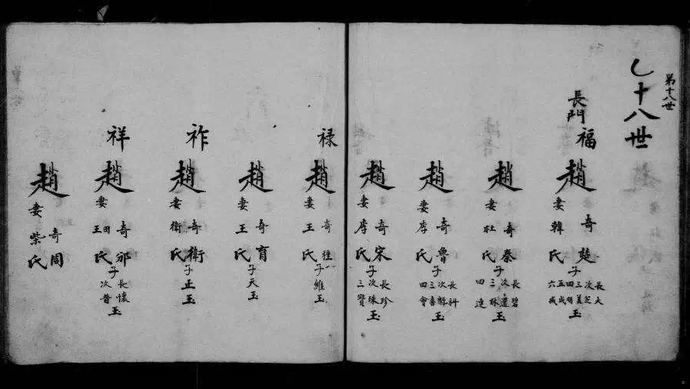 第十八世
十八世
長門
福
趙奇楚
妻韓氏
子長大次芝三美四明五成六成玉
趙奇秦
妻杜氏
子長碧次蘆三琢四連玉
趙奇魯
妻李氏
三壽四會玉
趙奇宋
妻李氏
子長珍次珠三寶玉
禄
趙奇
妻王氏
子維玉
趙奇育
妻王氏
子天玉
祚
趙奇衛
妻衛氏
子正玉
祥
趙奇邠
妻田王氏
子長懷次晉玉
趙奇周
妻柴氏